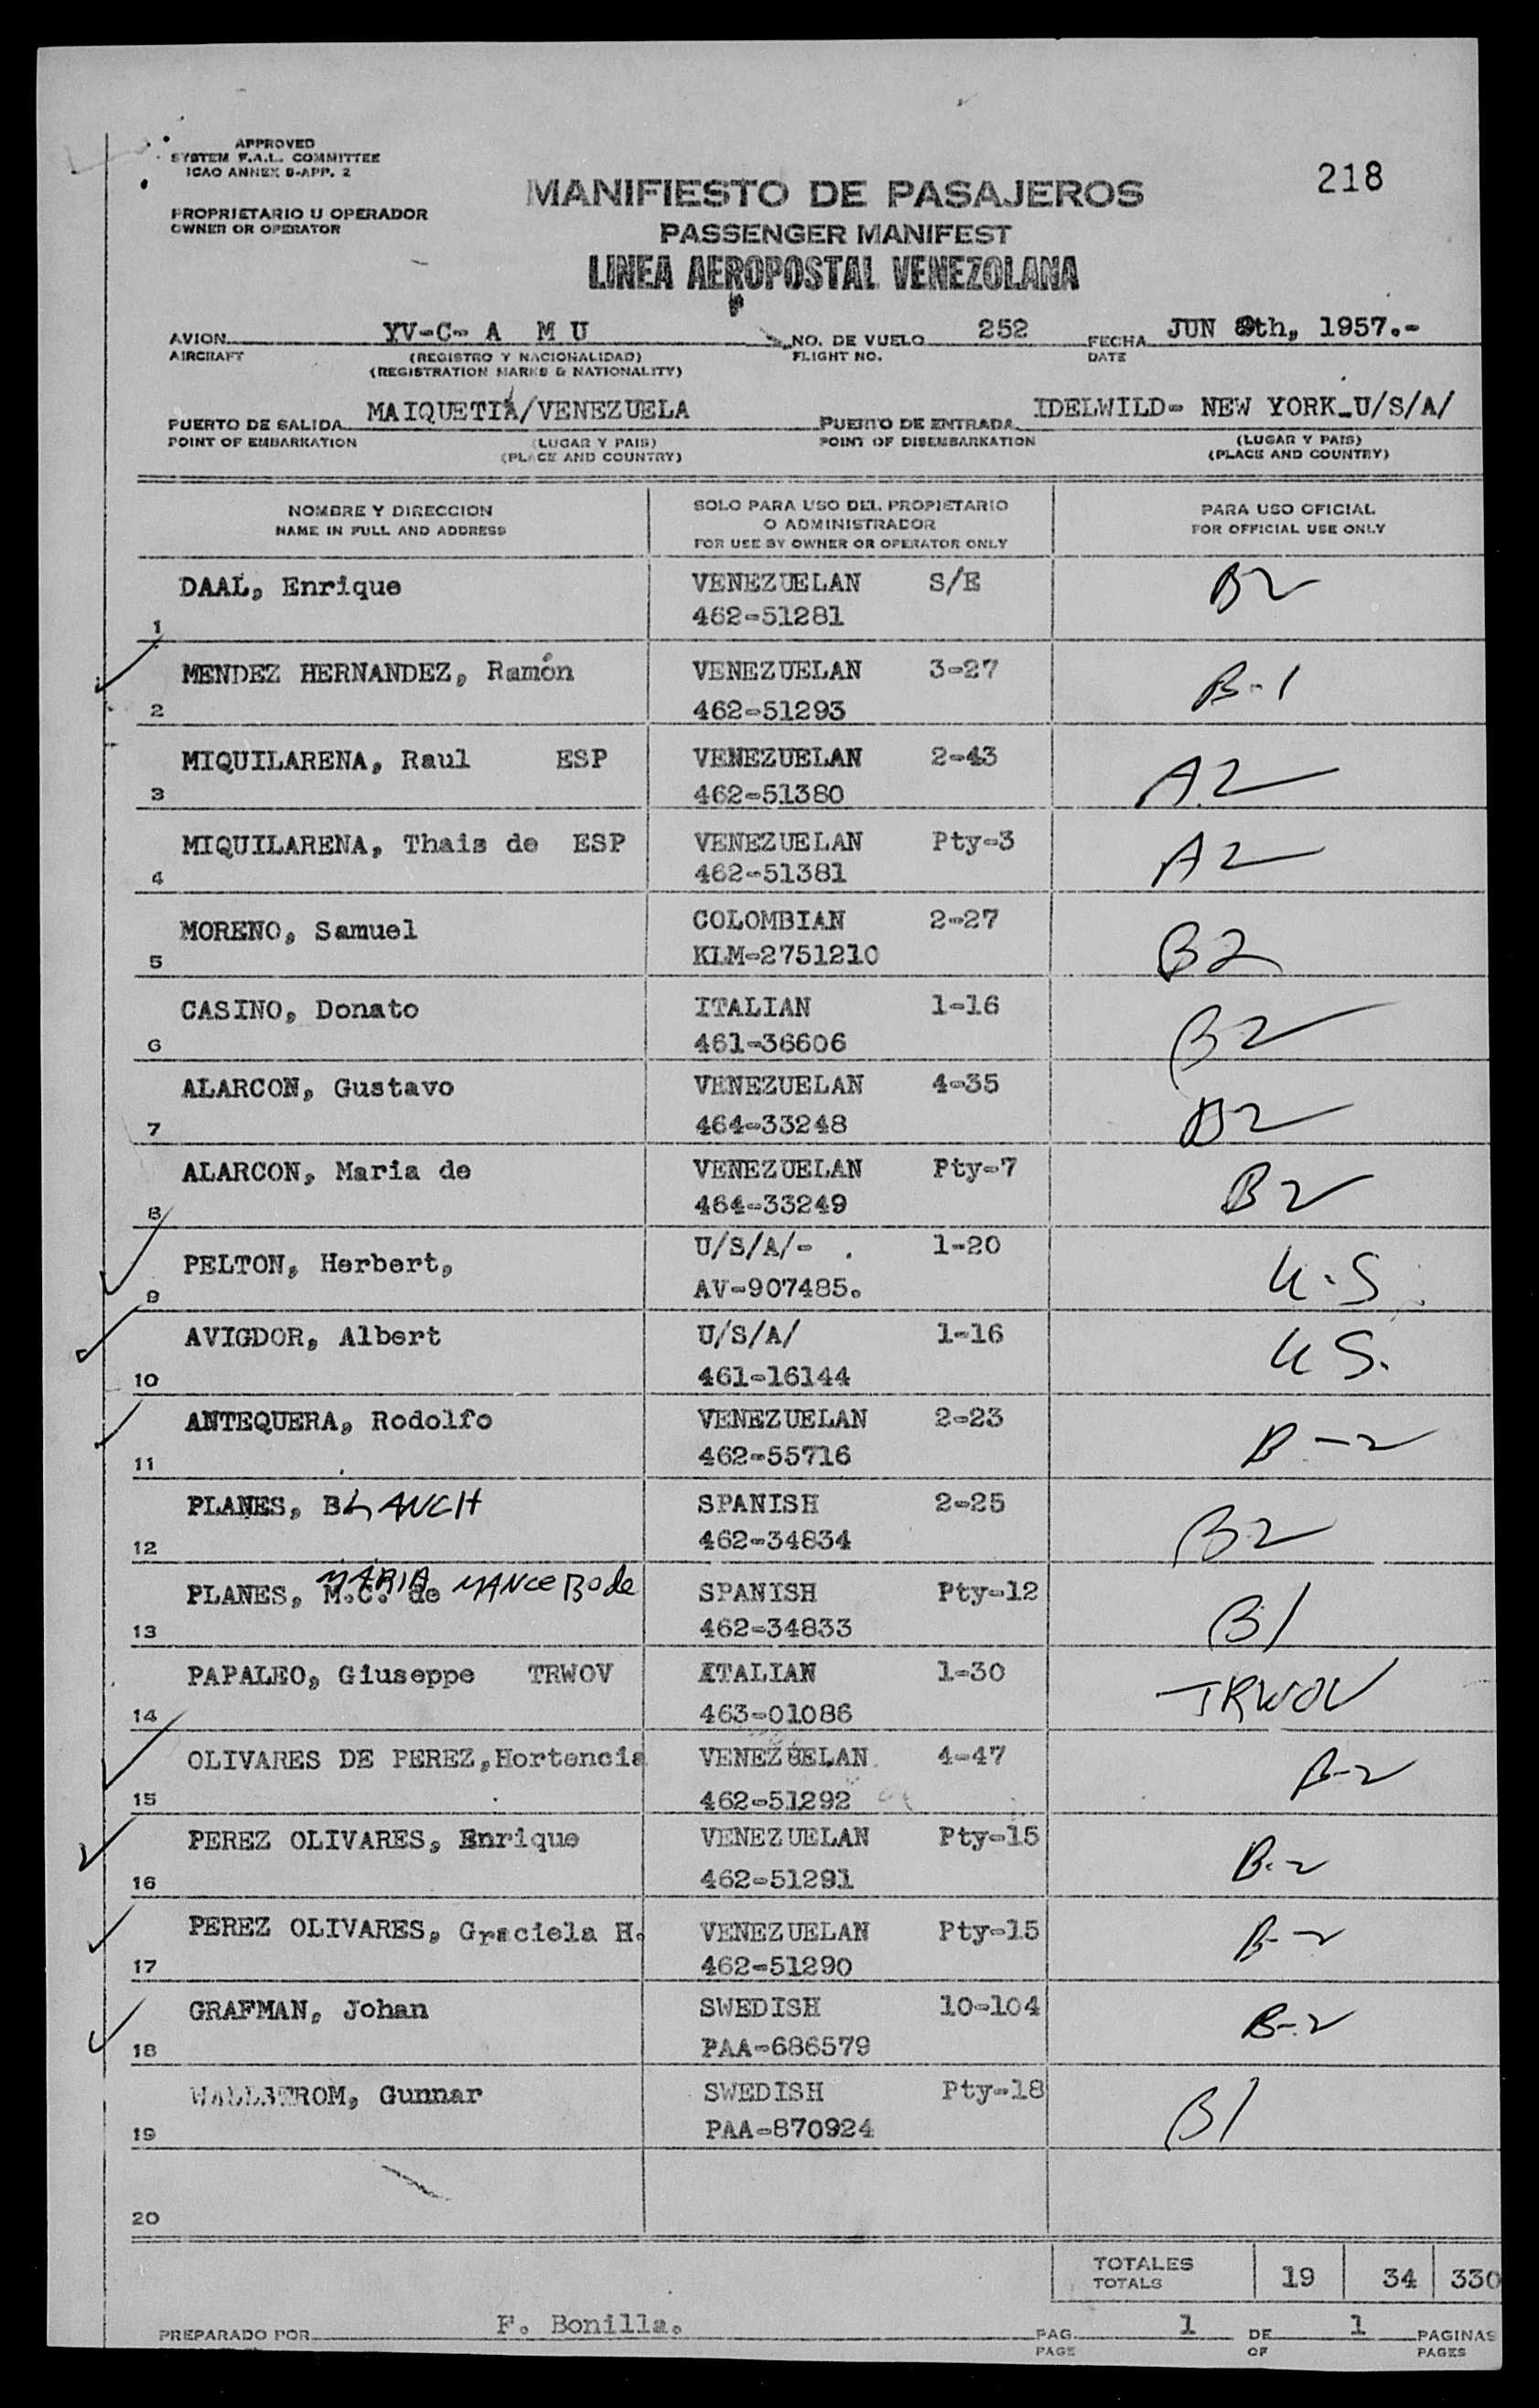 APPROVED
SYSTEM F.A.L. COMMITTEE
ICAO ANNEX 9-APP. 2
218
MANIFIESTO DE PASAJEROS
PROPRIETARIO U OPERADOR
OWNER OR OPERATOR
PASSENGER MANIFEST
LINEA AEROPOSTAL VENEZOLANA
AVION YV-C- A M U NO. DE VUELO 252 FECHA JUN 8th, 1957.-
AIRCRAFT (REGISTRO Y NACIONALIDAD) FLIGHT NO. DATE
(REGISTRATION MARKS & NATIONALITY)
PUERTO DE SALIDA MAIQUETIA/VENEZUELA PUERTO DE ENTRADA IDELWILD- NEW YORK-U/S/A/
POINT OF EMBARKATION (LUGAR Y PAIS) POINT OF DISEMBARKATION (LUGAR Y PAIS)
(PLACE AND COUNTRY) (PLACE AND COUNTRY)
NOMBRE Y DIRECCION SOLO PARA USO DEL PROPIETARIO PARA USO OFICIAL
O ADMINISTRADOR
NAME IN FULL AND ADDRESS FOR USE BY OWNER OR OPERATOR ONLY FOR OFFICIAL USE ONLY
DAAL, Enrique VENEZUELAN S/E B2
1 462-51281
MENDEZ HERNANDEZ, Ramón VENEZUELAN 3-27 B-1
2 462-51293
MIQUILARENA, Raul ESP VENEZUELAN 2-43 A2
3 462-51380
MIQUILARENA, Thais de ESP VENEZUELAN Pty-3 A2
4 462-51381
MORENO, Samuel COLOMBIAN 2-27 B2
5 KLM-2751210
CASINO, Donato ITALIAN 1-16 B2
6 461-36606
ALARCON, Gustavo VENEZUELAN 4-35 B2
7 464-33248
ALARCON, Maria de VENEZUELAN Pty-7 B2
8 464-33249
PELTON, Herbert, U/S/A/- 1-20 U.S
9 AV-907485.
AVIGDOR, Albert U/S/A/ 1-16 US.
10 461-16144
ANTEQUERA, Rodolfo VENEZUELAN 2-23 B-2
11 462-55716
PLANES, BLANCH SPANISH 2-25 B2
12 462-34834
MARIA MANCEBO de
PLANES, M.C. de SPANISH Pty-12 B1
13 462-34833
PAPALEO, Giuseppe TRWOV ITALIAN 1-30 TRWOV
14 463-01086
OLIVARES DE PEREZ,Hortencia VENEZUELAN 4-47 B-2
15 462-51292
PEREZ OLIVARES, Enrique VENEZUELAN Pty-15 B-2
16 462-51291
PEREZ OLIVARES, Graciela H. VENEZUELAN Pty-15 B-2
17 462-51290
GRAFMAN, Johan SWEDISH 10-104 B-2
18 PAA-686579
WALLSTROM, Gunnar SWEDISH Pty-18 B1
19 PAA-870924
20
TOTALES 19 34 330
TOTALS
PREPARADO POR F. Bonilla. PAG. 1 DE 1 PAGINAS
PAGE OF PAGES